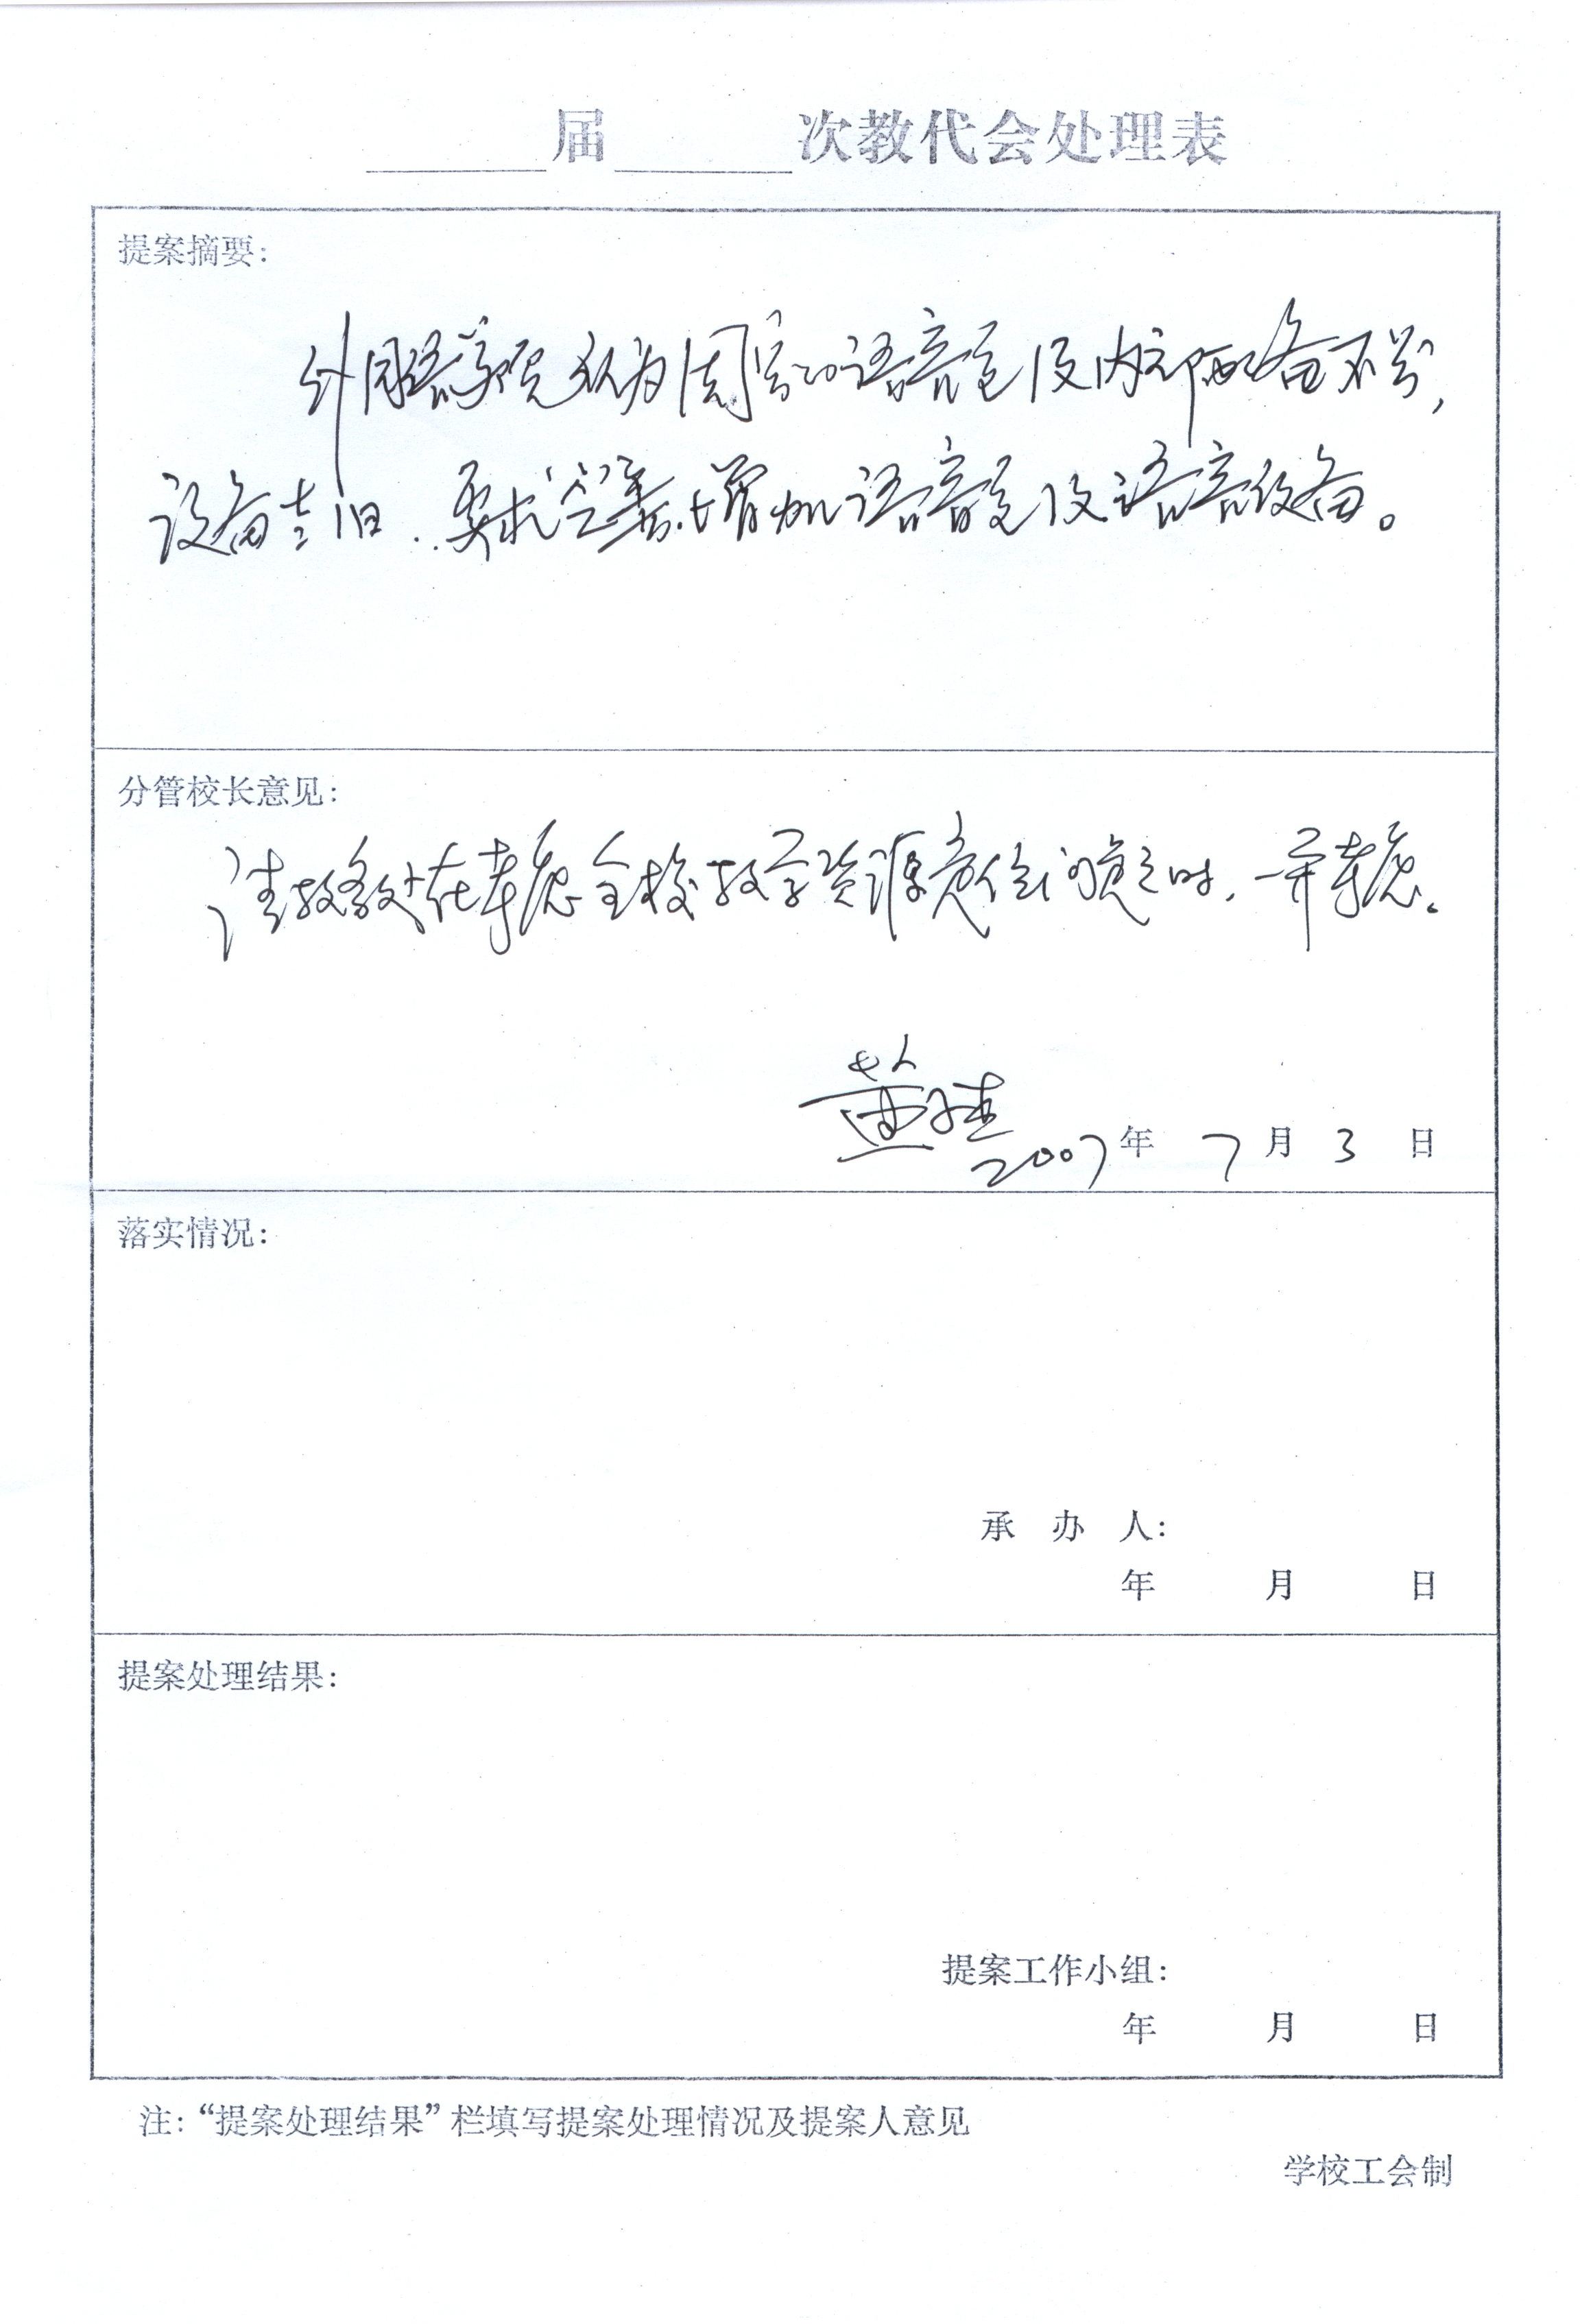 届 次教代会处理表
提案摘要:
外国语学院认为闵行的语音室及内部配备不当,
设备古旧..要求完善、增加语音室及语音设备。
分管校长意见:
请教务处在考虑全校教学资源 问题之时,一并考虑。
2007年 7月 3日
落实情况:
承 办 人:
年 月 日
提案处理结果:
提案工作小组:
年 月 日
注:“提案处理结果”栏填写提案处理情况及提案人意见
学校工会制